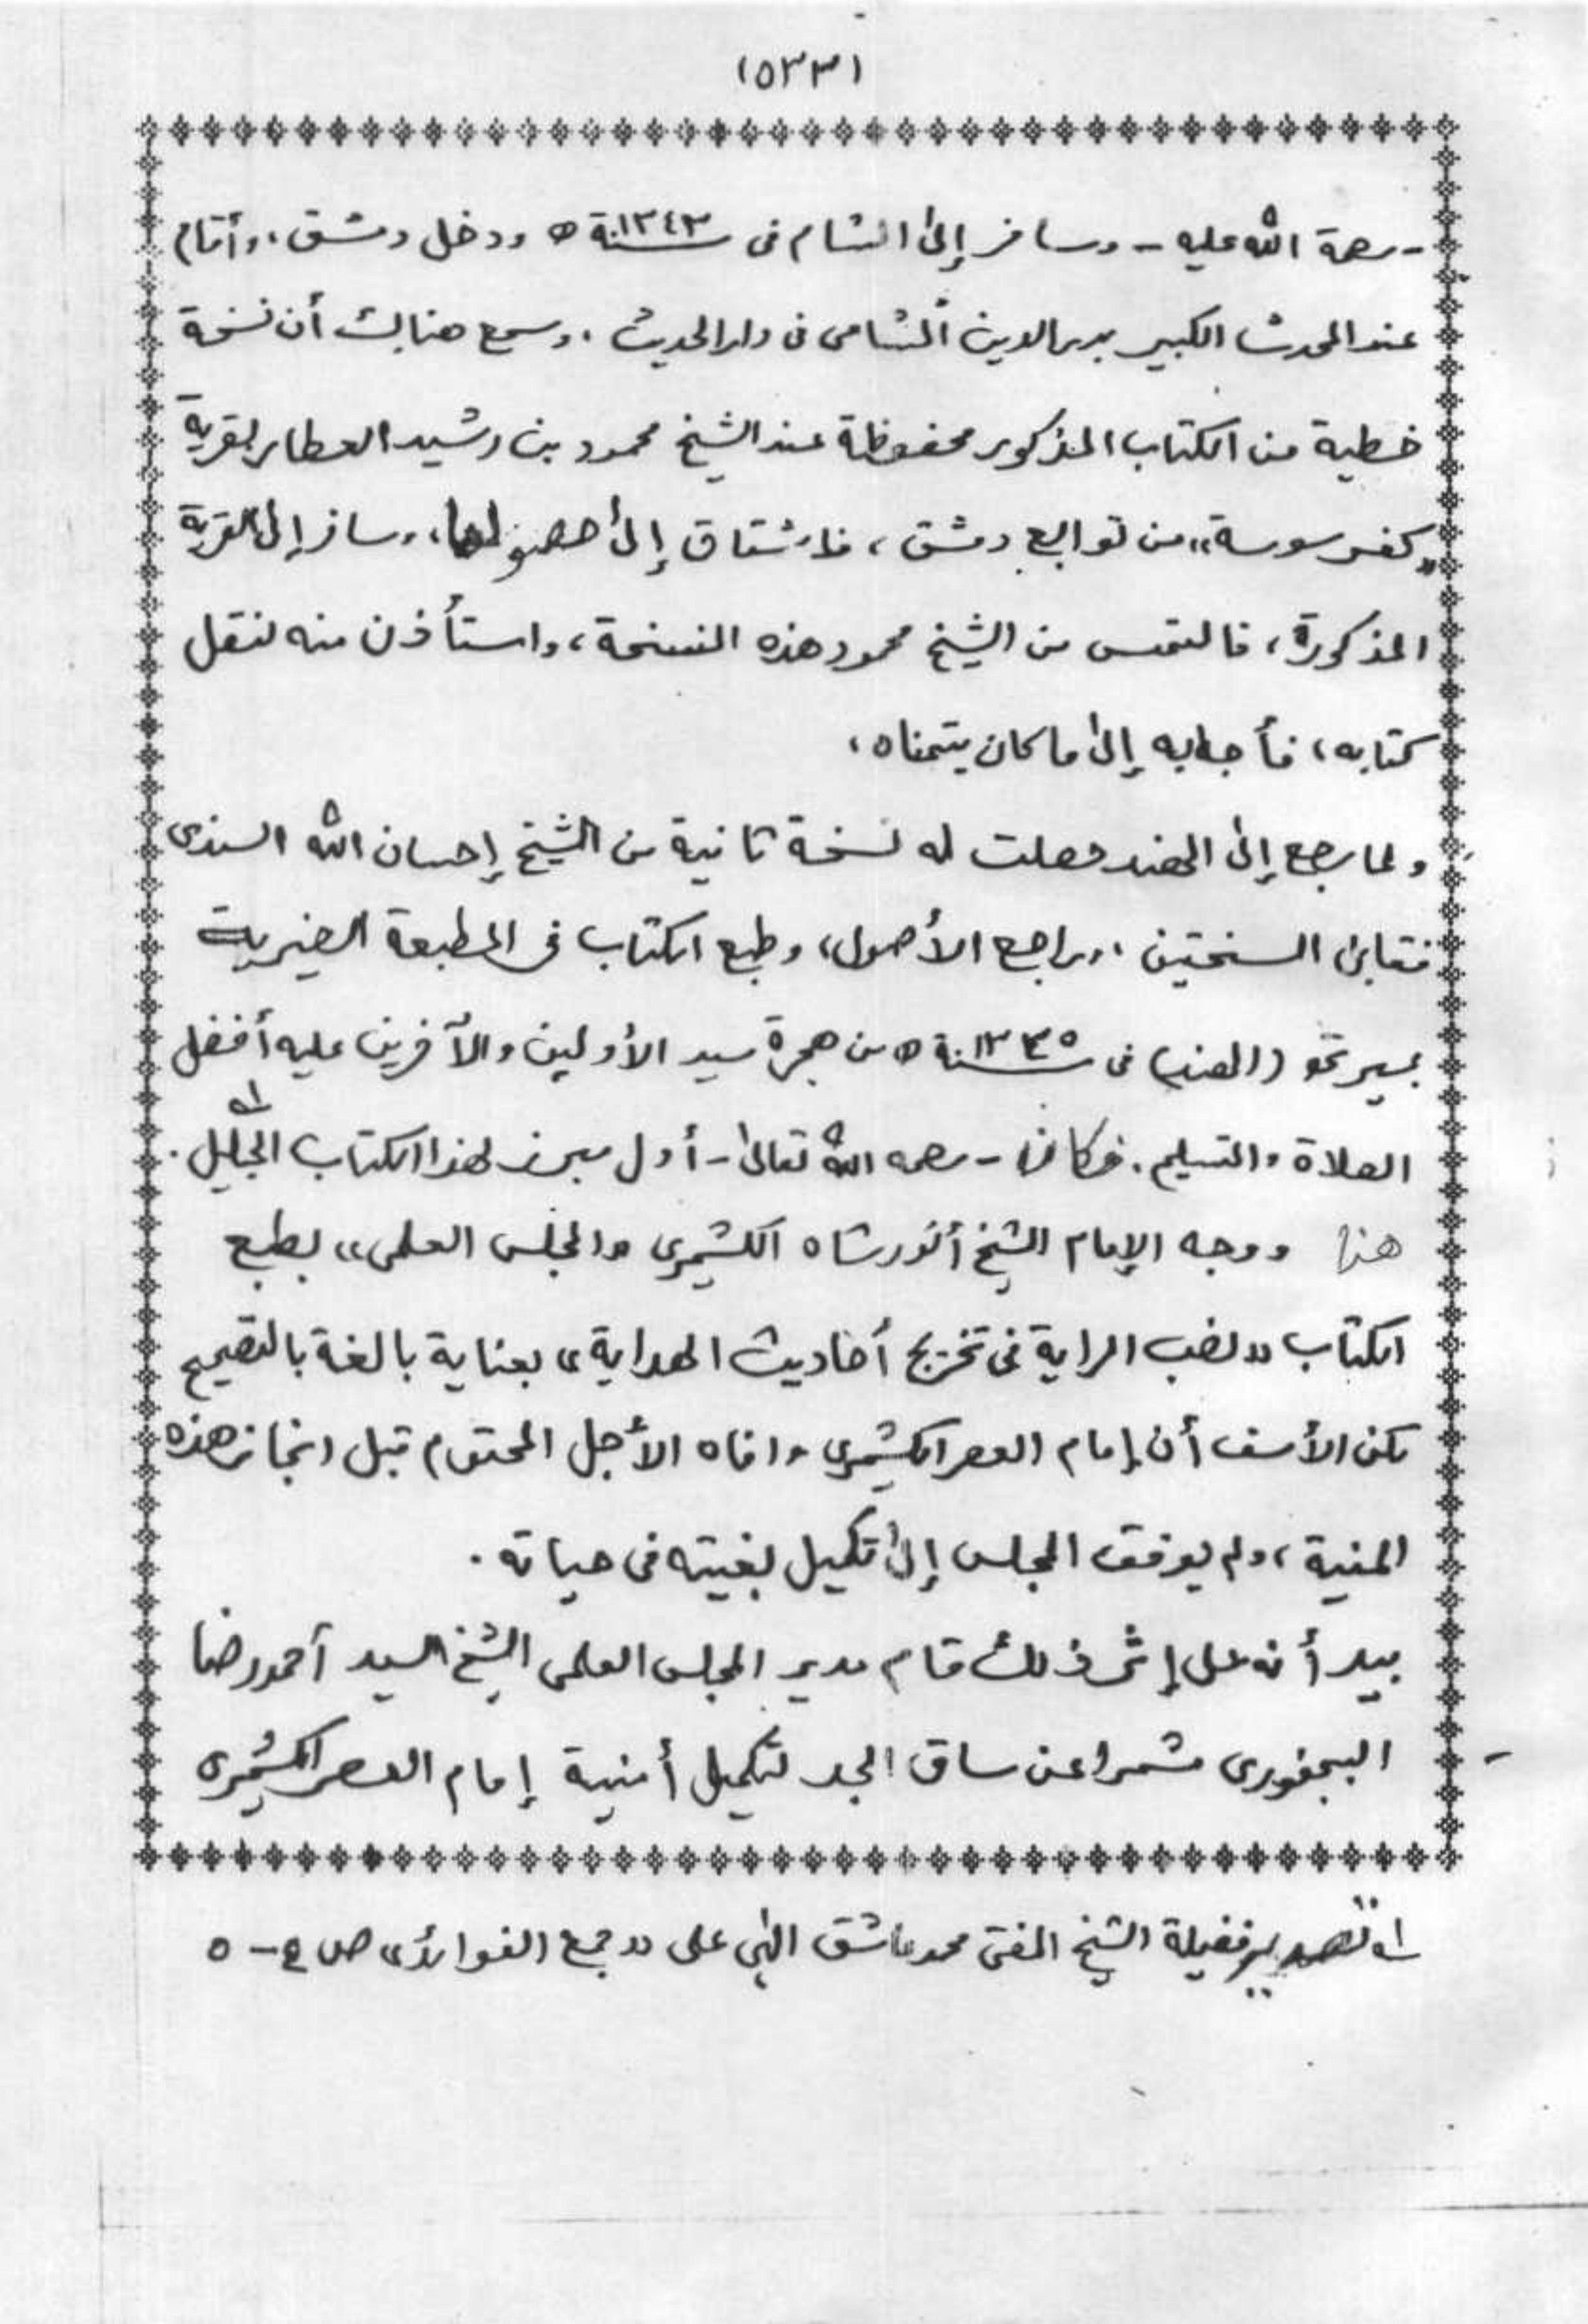 (٥٣٣)
-رحمة الله عليه- وسافر إلى الشام فى سنة ١٣٤٣ه ودخل دمشق، وأقام
عند المحدث الكبير بدر الدين الشامى فى دار الحديث، وسمع هنالك أن نسخة
خطية من الكتاب المذكور محفوظة عند الشيخ محمود بن رشيد العطار بقرية
"كفر سوسة" من توابع دمشق، فاشتاق إلى حصولها، وسافر إلى القرية
المذكورة، فالتمس من الشيخ محمود هذه النسخة، واستأذن منه لنقل
كتابه، فأجابه إلى ما كان يتمناه،
ولما رجع إلى الهند حصلت له نسخة ثانية من الشيخ إحسان الله السندى
فتقابل النسختين، وراجع الأصول، وطبع الكتاب فى المطبعة الخيرية
بميرتهو (الهند) فى سنة ١٣٤٥ه من هجرة سيد الأولين والآخرين عليه أفضل
الصلاة والتسليم. فكان -رحمه الله تعالى- أول مبرز لهذا الكتاب الجليل. ١ه
هذا ووجه الإمام الشيخ أنور شاه الكشميرى "المجلس العلمى" بطبع
الكتاب "نصب الراية فى تخريج أحاديث الهداية" بعناية بالغة بالتصحيح
لكن الأسف أن إمام العصر الكشميرى وافاه الأجل المحتوم قبل انجاز هذه
المنية، ولم يوفق المجلس إلى تكميل بغيته فى حياته.
بيد أنه على إثر ذلك قام مدير المجلس العلمى الشيخ السيد أحمد رضا
البجنورى مشمرا عن ساق الجد لتكميل أمنية إمام العصر الكشميرى
١ه تصدير فضيلة الشيخ المفتى محمد عاشق إلهى على "جمع الفوائد" ص ٤-٥